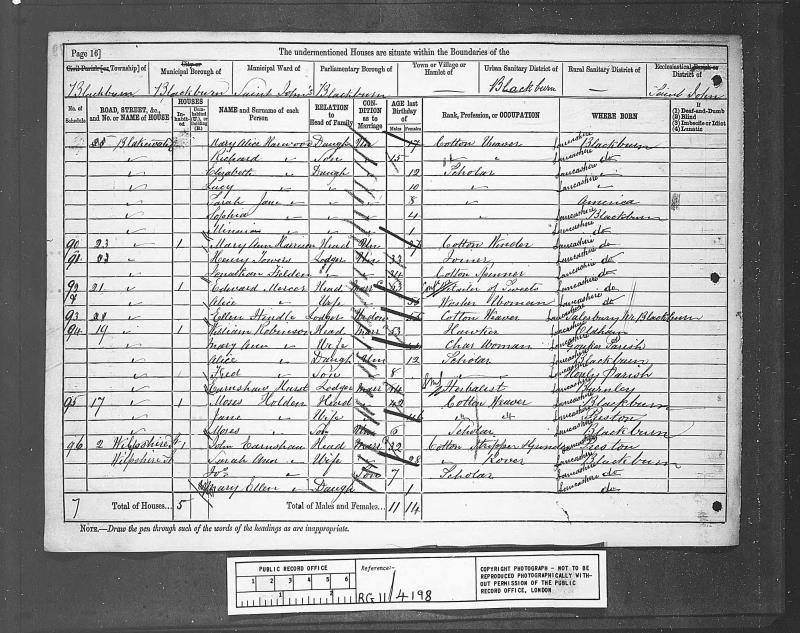 Page 16]
The undermentioned Houses are situate within the Boundaries of the
Civil Parish [or, Township] of
City or Municipal Borough of
Municipal Ward of
Parliamentary Borough of
Town or Village or Hamlet of
Urban Sanitary District of
Rural Sanitary District of
Ecclesiastical Parish or District of
Blackburn Blackburn Saint John's Blackburn — Blackburn — Saint John
No. of Schedule
ROAD, STREET, &c., and No. or NAME of HOUSE
HOUSES
Inhabited
Uninhabited (U.), or Building (B.)
NAME and Surname of each Person
RELATION to Head of Family
CONDITION as to Marriage
AGE last Birthday of
Males
Females
Rank, Profession, or OCCUPATION
WHERE BORN
If
(1) Deaf-and-Dumb
(2) Blind
(3) Imbecile or Idiot
(4) Lunatic
Mary Alice Daugh Un 17 Cotton Weaver Lancashire Blackburn
Richard Son 15 Lancashire do
Elizabeth Daugh 12 Scholar Lancashire do
Lucy 10 Lancashire
Sarah Jane 8 America
Sophia 4 Lancashire Blackburn
Minnie 1 Lancashire do
90 23 1 Mary Ann Harrison Head Un Cotton Winder Lancashire do
91 Henry Towers Lodger Un 33 Joiner Lancashire do
Jonathan 24 Cotton Spinner Lancashire do
92 21 1 Edward Mercer Head of Sweets Lancashire do
Alice Wife Washer Woman Lancashire do
93 Ellen Hindle Lodger Widow Cotton Weaver Salesbury Nr. Blackburn
94 19 1 William Robinson Head Mar 53 Hawker Lancashire Oldham
Mary Ann Wife Char Woman Lancashire Parish
Alice Daugh Un 12 Scholar Lancashire Blackburn
Fred Son 8 Lancashire Parish
Earnshaw Hurst Lodger Mar Herbalist Lancashire Burnley
95 17 1 Moses Holden Head 42 Cotton Weaver Lancashire Blackburn
Jane Wife 46 Lancashire Preston
Moses Son 6 Scholar Lancashire Blackburn
96 2 Wilpshire St 1 John Earnshaw Head Mar 32 Cotton Stripper Lancashire Preston
Wilpshire St Sarah Ann Wife 28 Rover Lancashire Blackburn
Son 7 Scholar Lancashire do
Mary Ellen Daugh Lancashire do
7 Total of Houses... 5 Total of Males and Females... 11 14
NOTE.—Draw the pen through such of the words of the headings as are inappropriate.
PUBLIC RECORD OFFICE
1 2 3 4 5 6
1 2
Reference:-
RG 11/4198
COPYRIGHT PHOTOGRAPH - NOT TO BE REPRODUCED PHOTOGRAPHICALLY WITHOUT PERMISSION OF THE PUBLIC RECORD OFFICE, LONDON